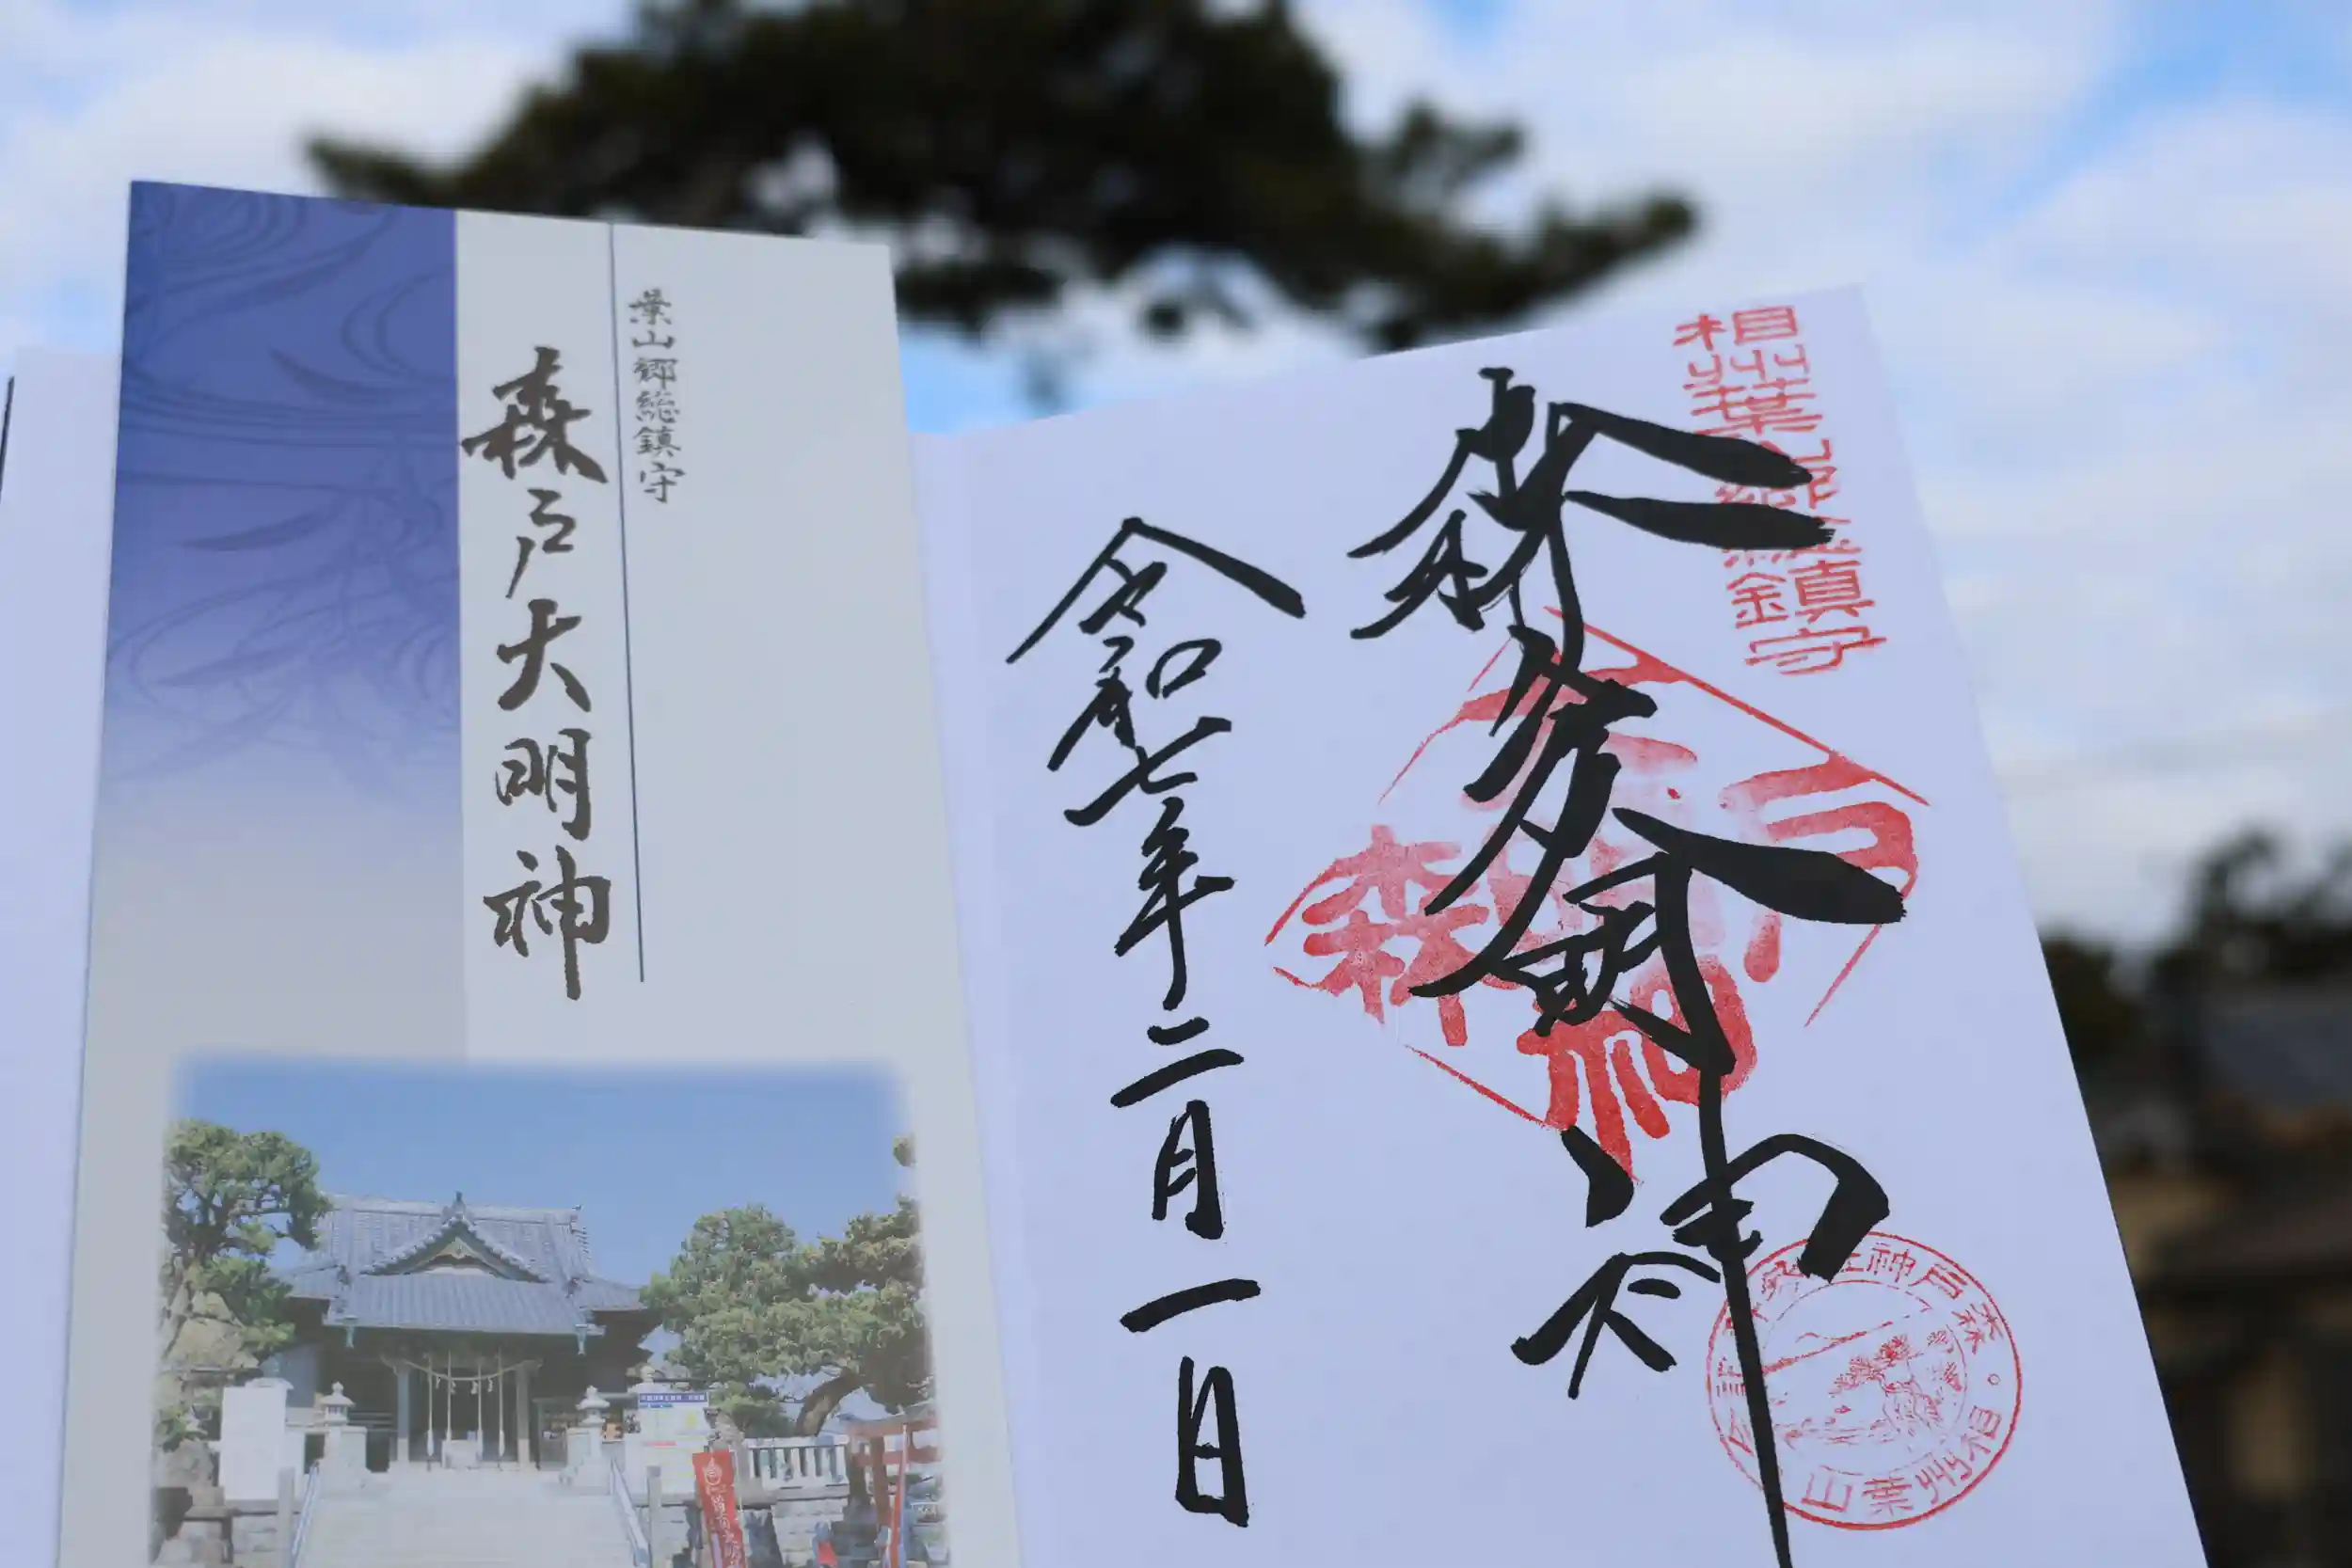 葉山郷総鎮守
森戸大明神
相州葉山郷総鎮守
森戸大明神
令和七年二月一日
相州葉山
森戸神社